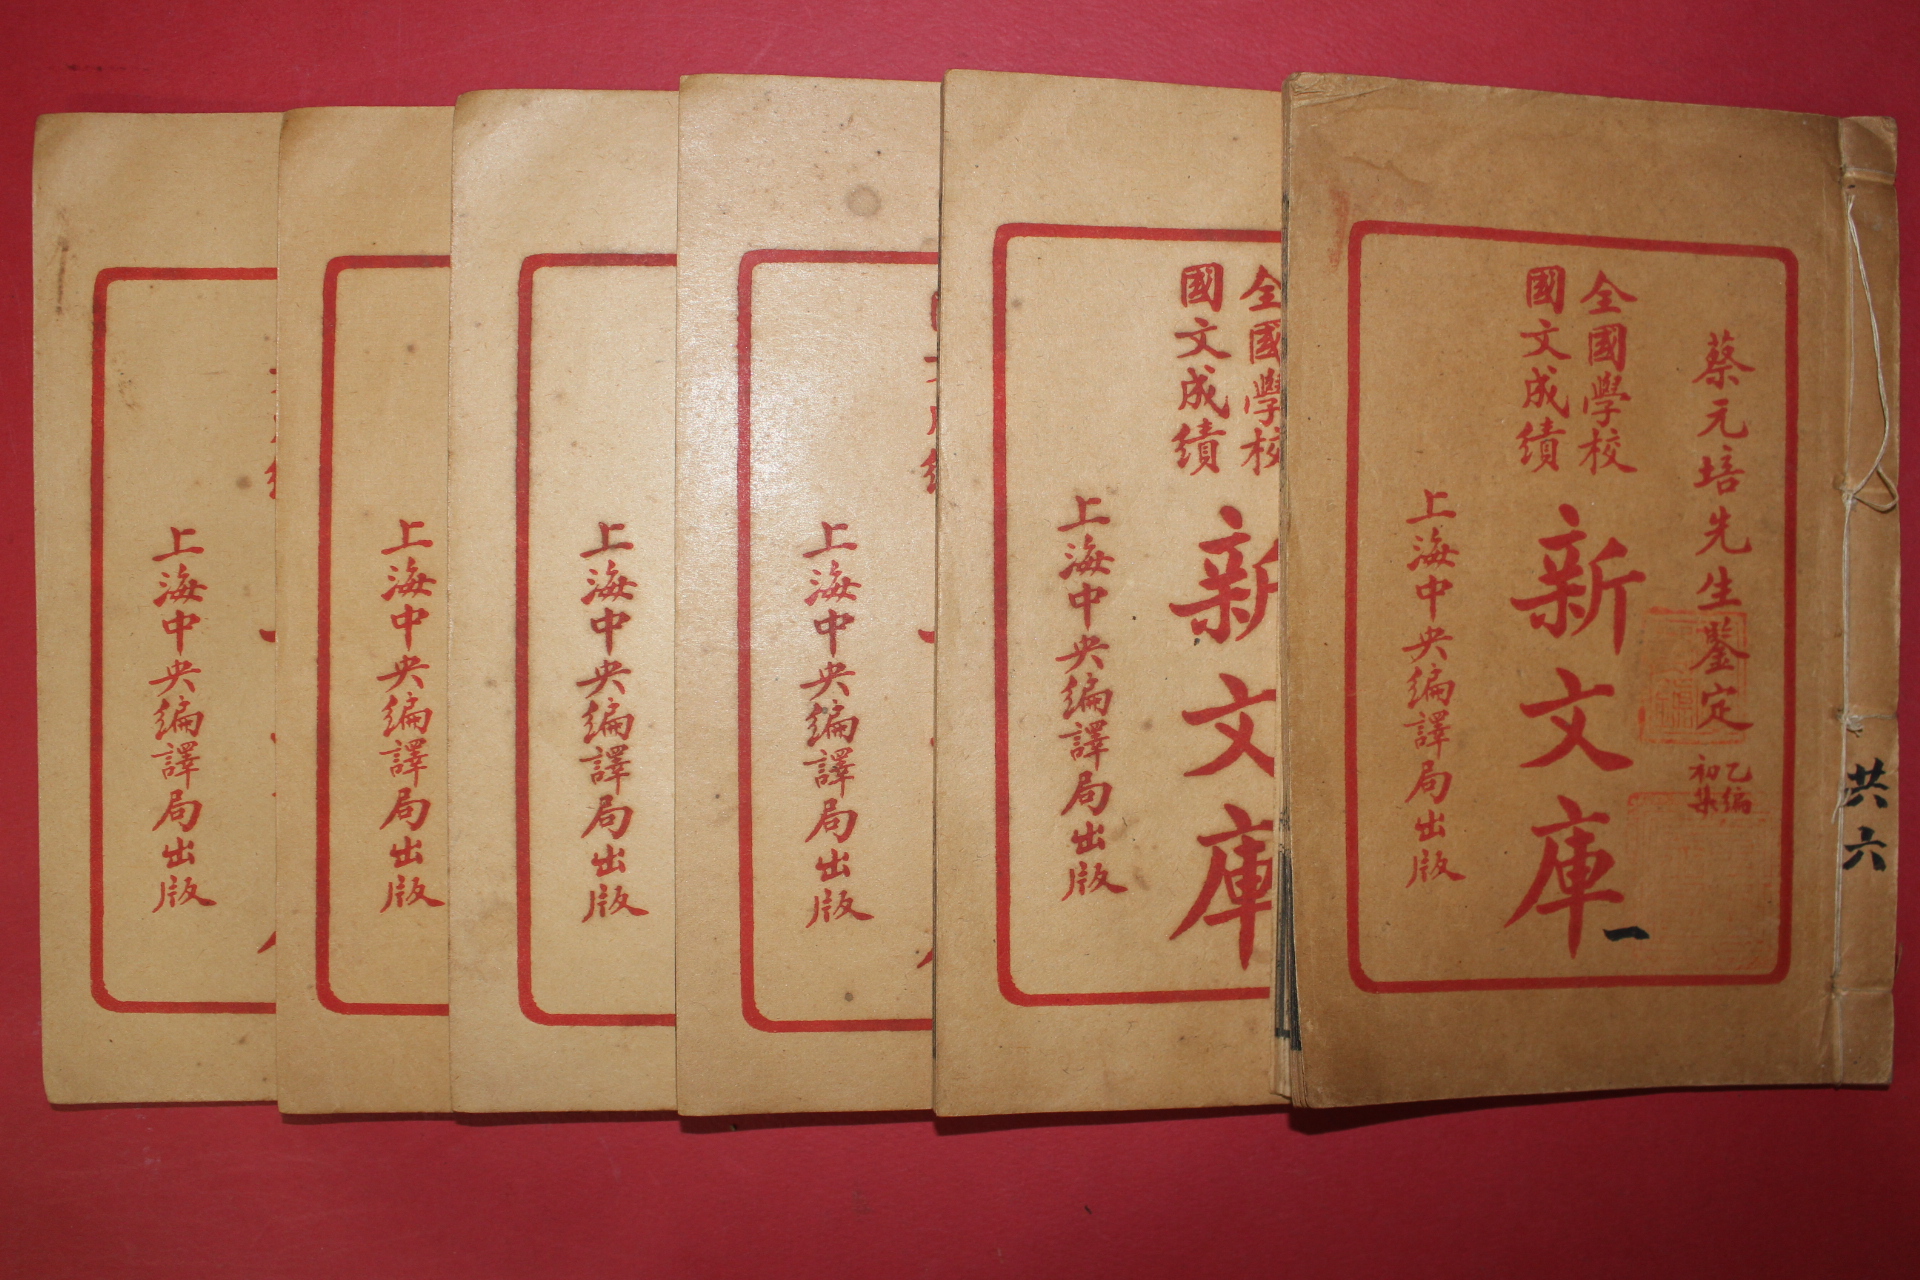 蔡元培先生鑒定
乙編
初集
全國學校
國文成績
新文庫
一
上海中央編譯局出版
共六
全國學校
國文成績
新文庫
上海中央編譯局出版
上海中央編譯局出版
上海中央編譯局出版
上海中央編譯局出版
上海中央編譯局出版